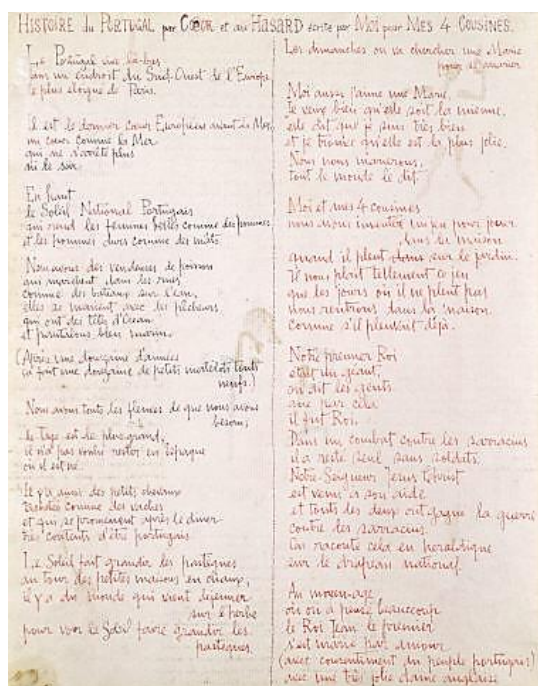 HISTOIRE du PORTUGAL par CŒUR et au HASARD écrite par MOI pour MES 4 COUSINES.
Le Portugal
dans un endroit du Sud-Ouest de l'Europe
le plus éloigné de Paris.
Il est le dernier cœur Européen avant la Mer,
un cœur comme la Mer
qui ne s'arrête plus
ni le soir.
En haut
le Soleil National Portugais
qui rend les femmes belles comme des pommes
et les hommes durs comme des mâts.
Nous avons des vendeuses de poissons
qui marchent dans les rues
comme des bateaux sur l'eau,
elles se marient avec des pêcheurs
qui ont des têtes d'Océan
et pantalons bleu marin.
(Après une douzaine d'années
ça fait une douzaine de petits matelots touts
neufs.)
Nous avons touts les fleuves de que nous avons
besoin;
le Tage est le plus grand,
il n'a pas voulu rester en Espagne
où il est né.
Il y a aussi des petits chevaux
comme des vaches
et qui se promènent après le dîner
très contents d'être portugais.
Le Soleil fait grandir les pastèques
au tour des petites maisons en chaux,
il y a du monde qui vient déjeuner
sur l'herbe
pour voir le Soleil faire grandir les
pastèques.
Les dimanches on va chercher une Marie
pour se marier
Moi aussi j'aime une Marie,
Je veux bien qu'elle soit la mienne,
elle dit que je suis très bien
et je trouve qu'elle est la plus jolie.
Nous nous marierons,
tout le monde le dit.
Moi et mes 4 cousines
nous avons inventé un jeu pour jouer
dans la maison
quand il pleut dans sur le jardin.
Il nous plaît tellement ce jeu
que les jours où il ne pleut pas
nous rentrons dans la maison
comme s'il pleuvait déjà.
Notre premier Roi
était un géant,
on dit les gents
que par cela
il fut Roi.
Dans un combat contre les sarracins
il a resté seul sans soldats.
Notre-Seigneur Jésus Christ
est venu à son aide
et touts les deux ont gagné la guerre
contre les sarracins.
On raconte cela en heraldique
sur le drapeau national.
Au moyen-age
où on a pensé beaucoup
le Roi Jean le premier
s'est marié par amour
(avec consentiment du peuple portugais)
avec une très jolie dame anglaise